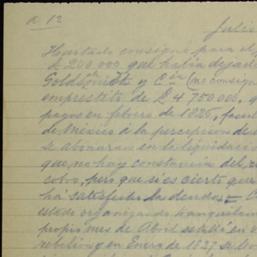 a 12
Julio
Hurtado consigna para el
£ 200.000 que había dejado
Goldsmith y Cia (no consign
empréstito de £ 4.750.000, q
pagos en febrero de 1826, facul
de México a la percepción de
se abonaran en la liquidación
que, no hay constancia del
cobro, pero que si es cierto que
ha satisfecho las deudas
este organizando tranquilam
propios mes de Abril
rebelión en Enero de 1827